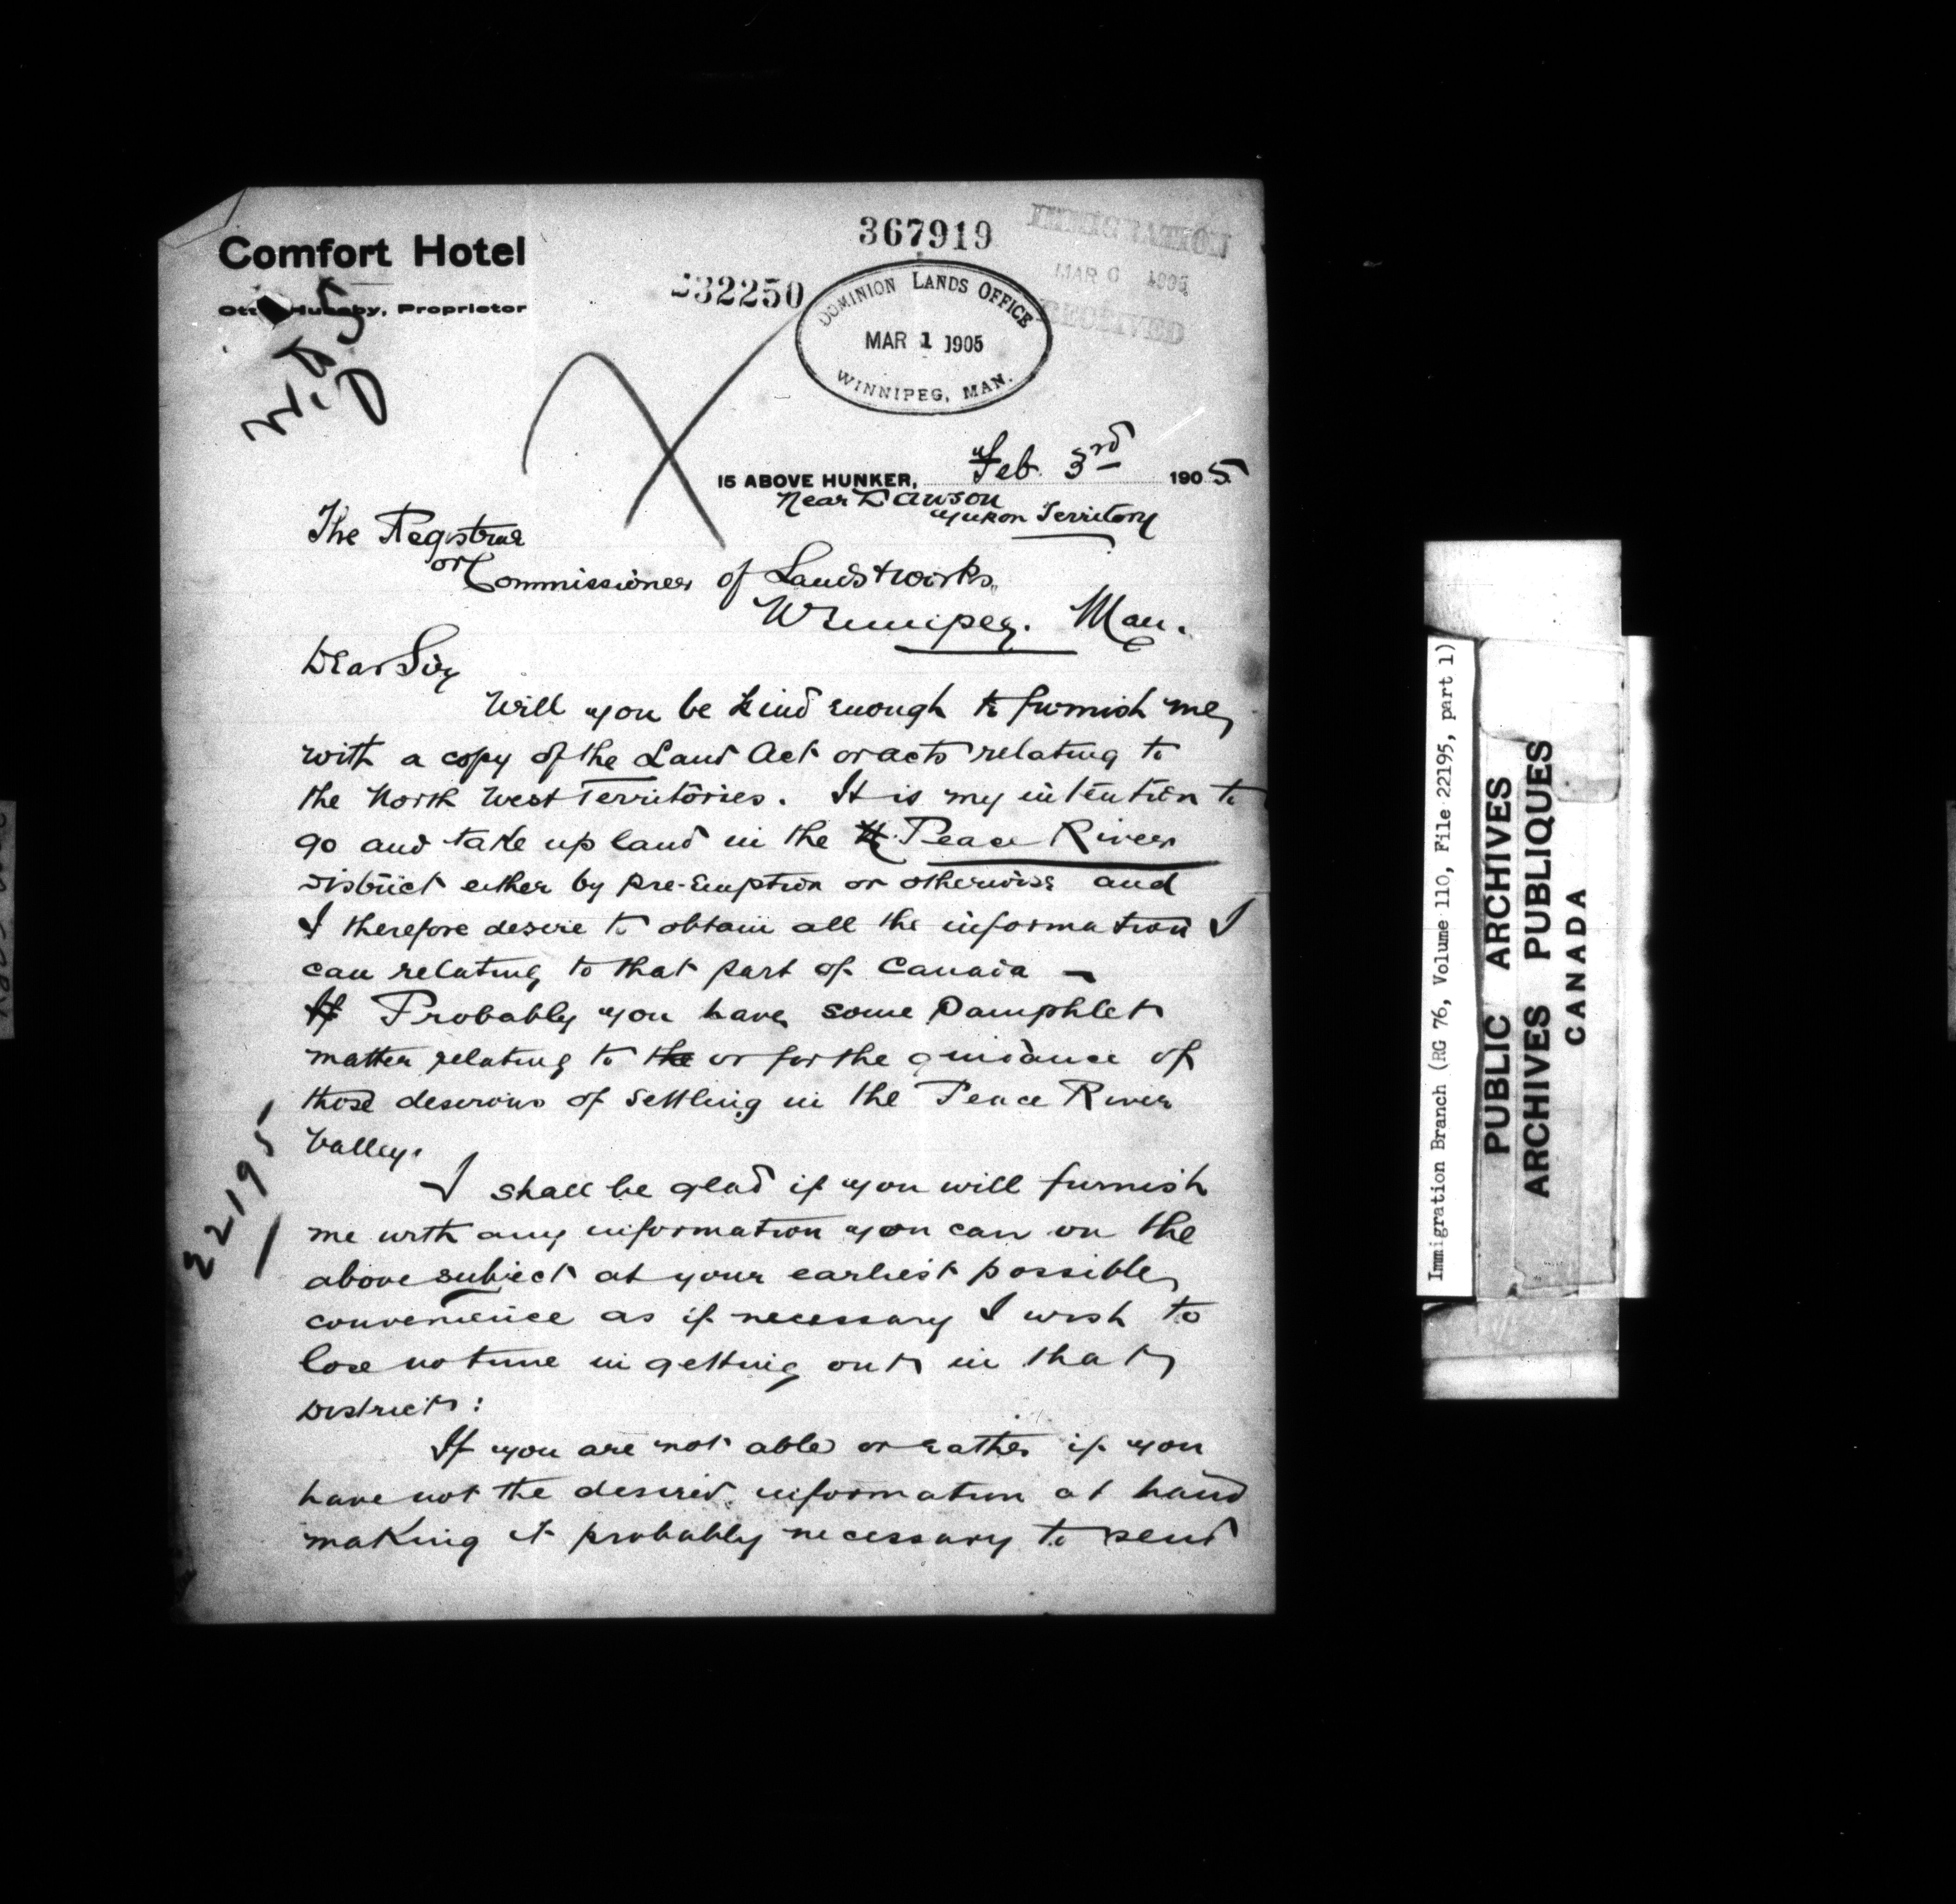 Comfort Hotel
Proprietor
367919
32250
IMMIGRATION
MAR 6 1905
RECEIVED
DOMINION LANDS OFFICE
MAR 1 1905
WINNIPEG, MAN.
15 ABOVE HUNKER, Feb. 3rd 1905
Near Dawson
Yukon Territory
The Registrar
or Commissioner of Lands & works
Winnipeg. Man.
Dear Sir
Will you be kind enough to furnish me
with a copy of the Land Act or acts relating to
the North West Territories. It is my intention to
go and take up land in the Peace River
District either by pre-emption or otherwise and
I therefore desire to obtain all the information I
can relating to that part of Canada –
Probably you have some Pamphlet
matter relating to the or for the guidance of
those desirous of settling in the Peace River
Valley.
I shall be glad if you will furnish
me with any information you can on the
above subject at your earliest possible
convenience as if necessary I wish to
lose no time in getting out in that
District:
If you are not able or rather if you
have not the desired information at hand
making it probably necessary to send
22195
Immigration Branch (RG 76, Volume 110, File 22195, part 1)
PUBLIC ARCHIVES
ARCHIVES PUBLIQUES
CANADA